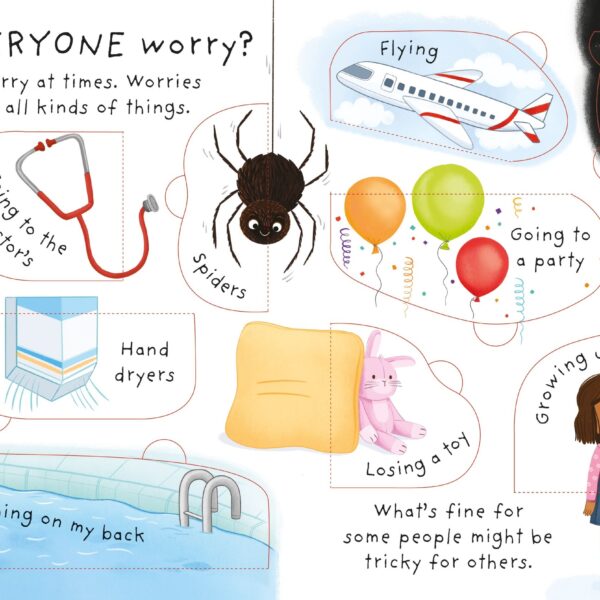 RYONE worry?
rry at times. Worries
all kinds of things.
Flying
ing to the
ctor's
Spiders
Going to
a party
Hand
dryers
Losing a toy
Growing u
ing on my back
What's fine for
some people might be
tricky for others.